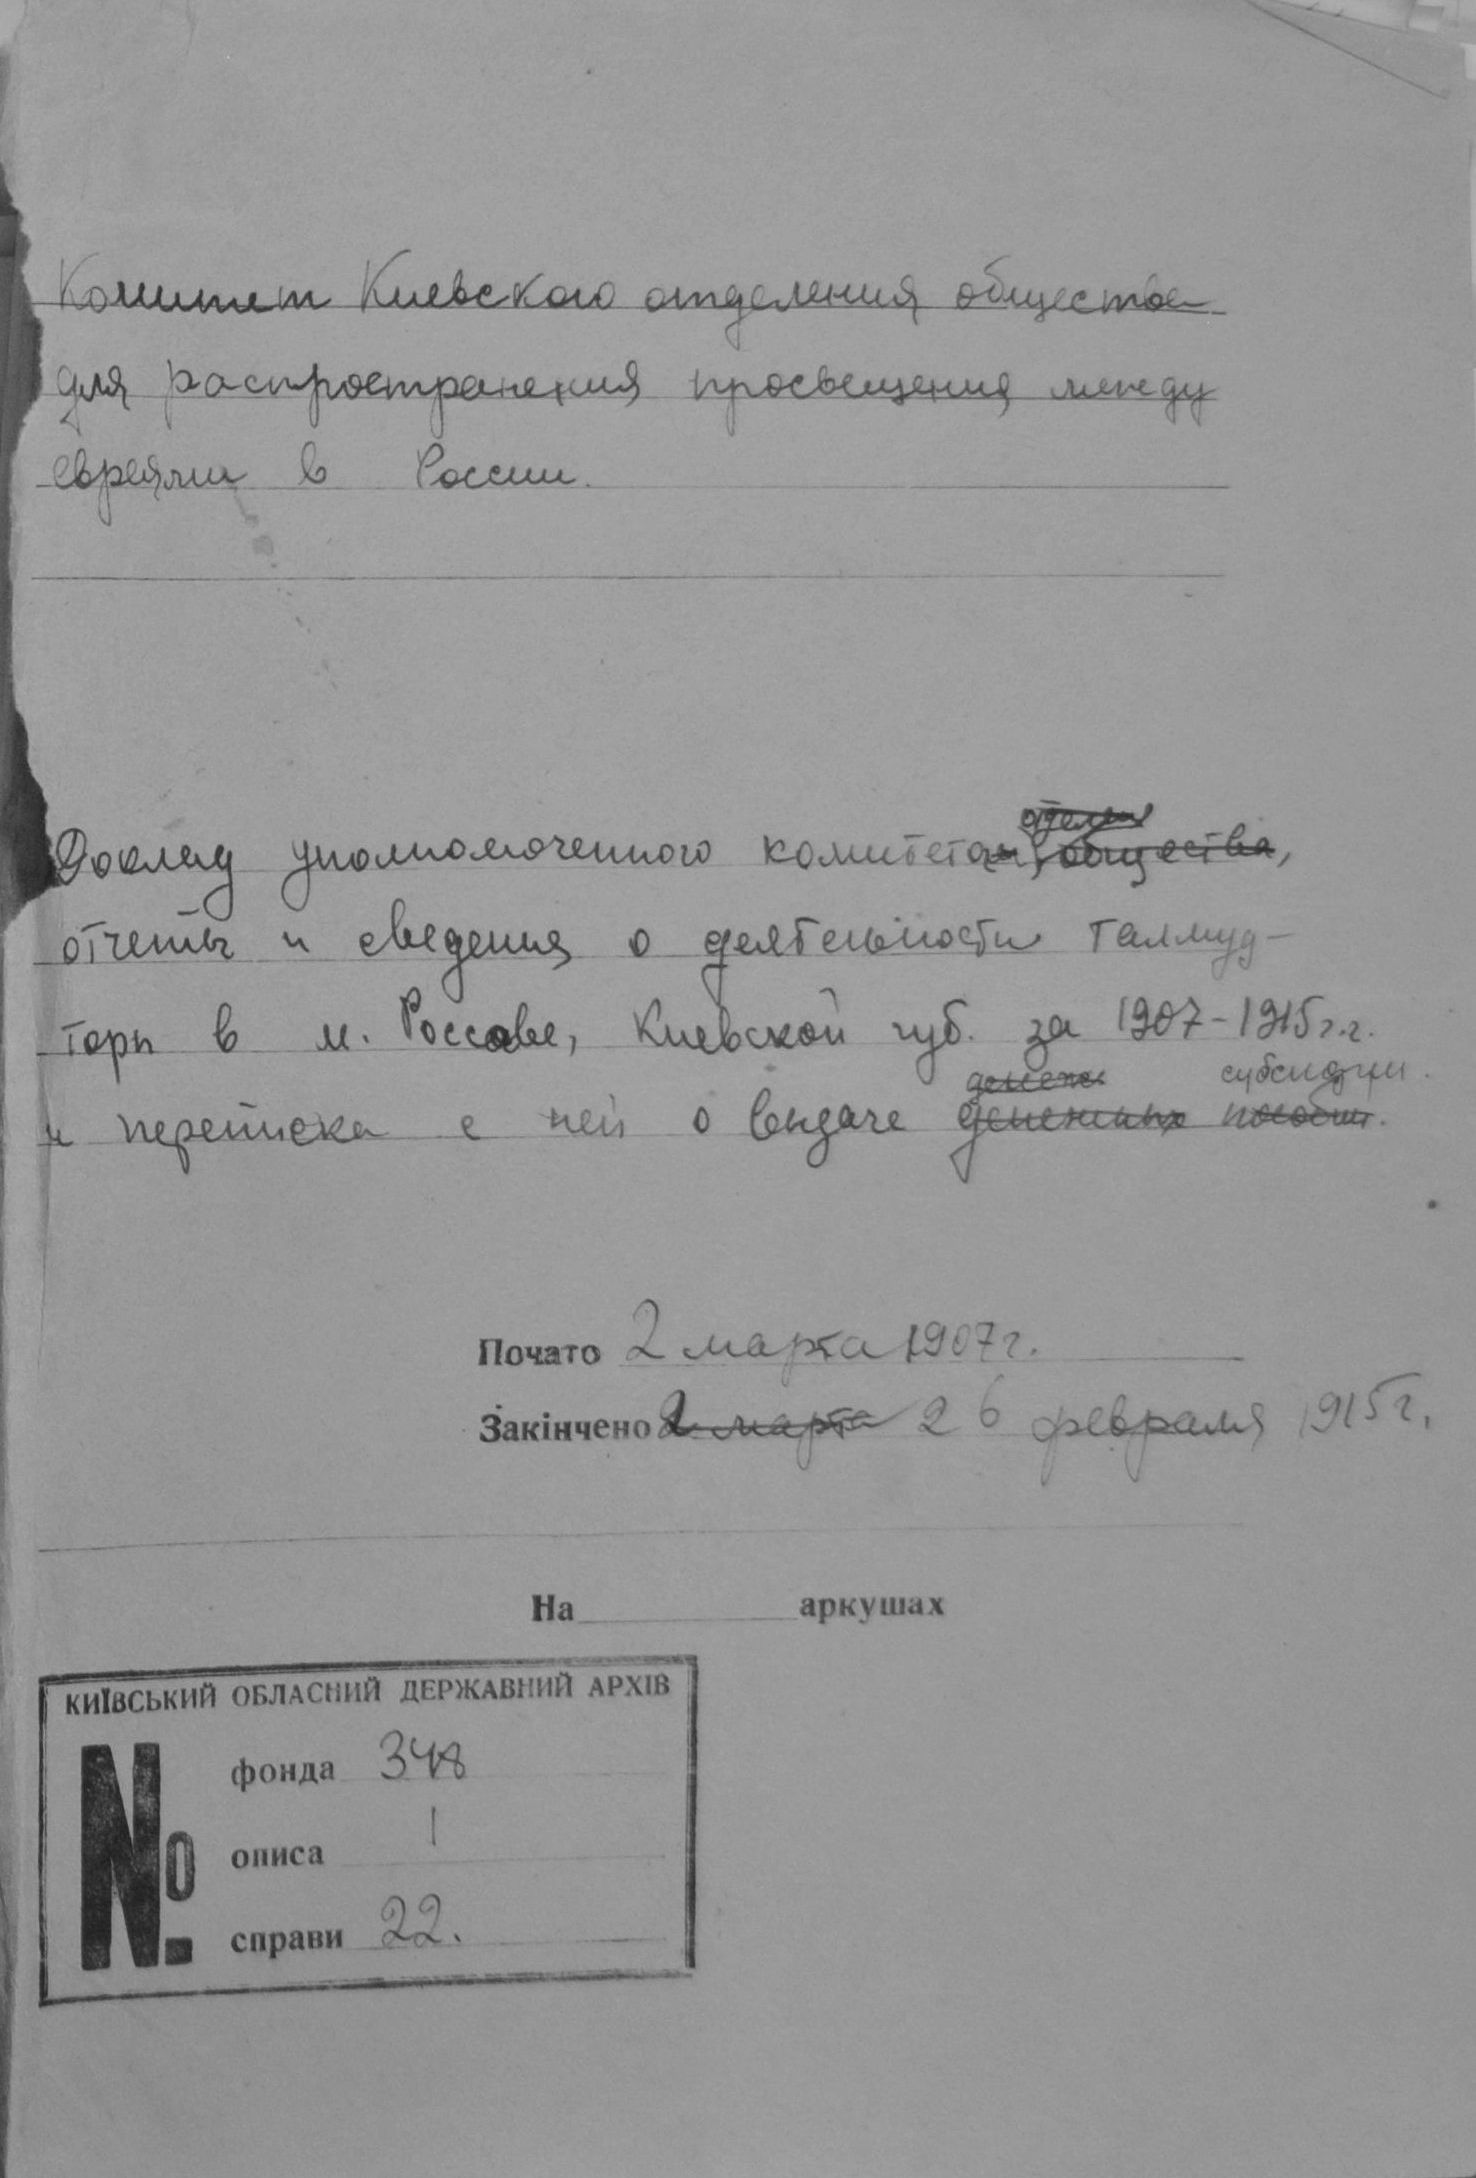 Комитет Киевского отделения общества
для распространения просвещения между
евреями в России.
Доклад уполномоченного комитета общества,
отчеты и сведения о деятельности Талмуд-
торы в м. Россаве, Киевской губ. за 1907-1915 г.г.
субсидии.
и переписка с ней о выдаче денежных пособий.
Почато 2 марта 1907 г.
Закінчено 2 марта 26 февраля 1915 г.
На аркушах
КИЇВСЬКИЙ ОБЛАСНИЙ ДЕРЖАВНИЙ АРХІВ
№
фонда 348
описа 1
справи 22.